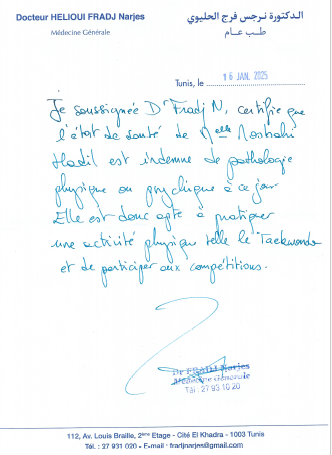 Docteur HELIOUI FRADJ Narjes
الدكتورة نرجس فرج الحليوي
Médecine Générale
طب عام
Tunis, le 16 JAN. 2025
Je soussignée Dr Fradj N, certifie que
l'état de santé de Melle
Hadil est indemne de pathologie
physique ou psychique à ce jour
Elle est donc apte à pratiquer
une activité physique telle le Taekwondo
et de participer aux compétitions.
Dr FRADJ Narjes
Médecine Générale
Tél : 27 93 10 20
112, Av. Louis Braille, 2ème Etage - Cité El Khadra - 1003 Tunis
Tél. : 27 931 020 - E-mail : fradjnarjes@gmail.com